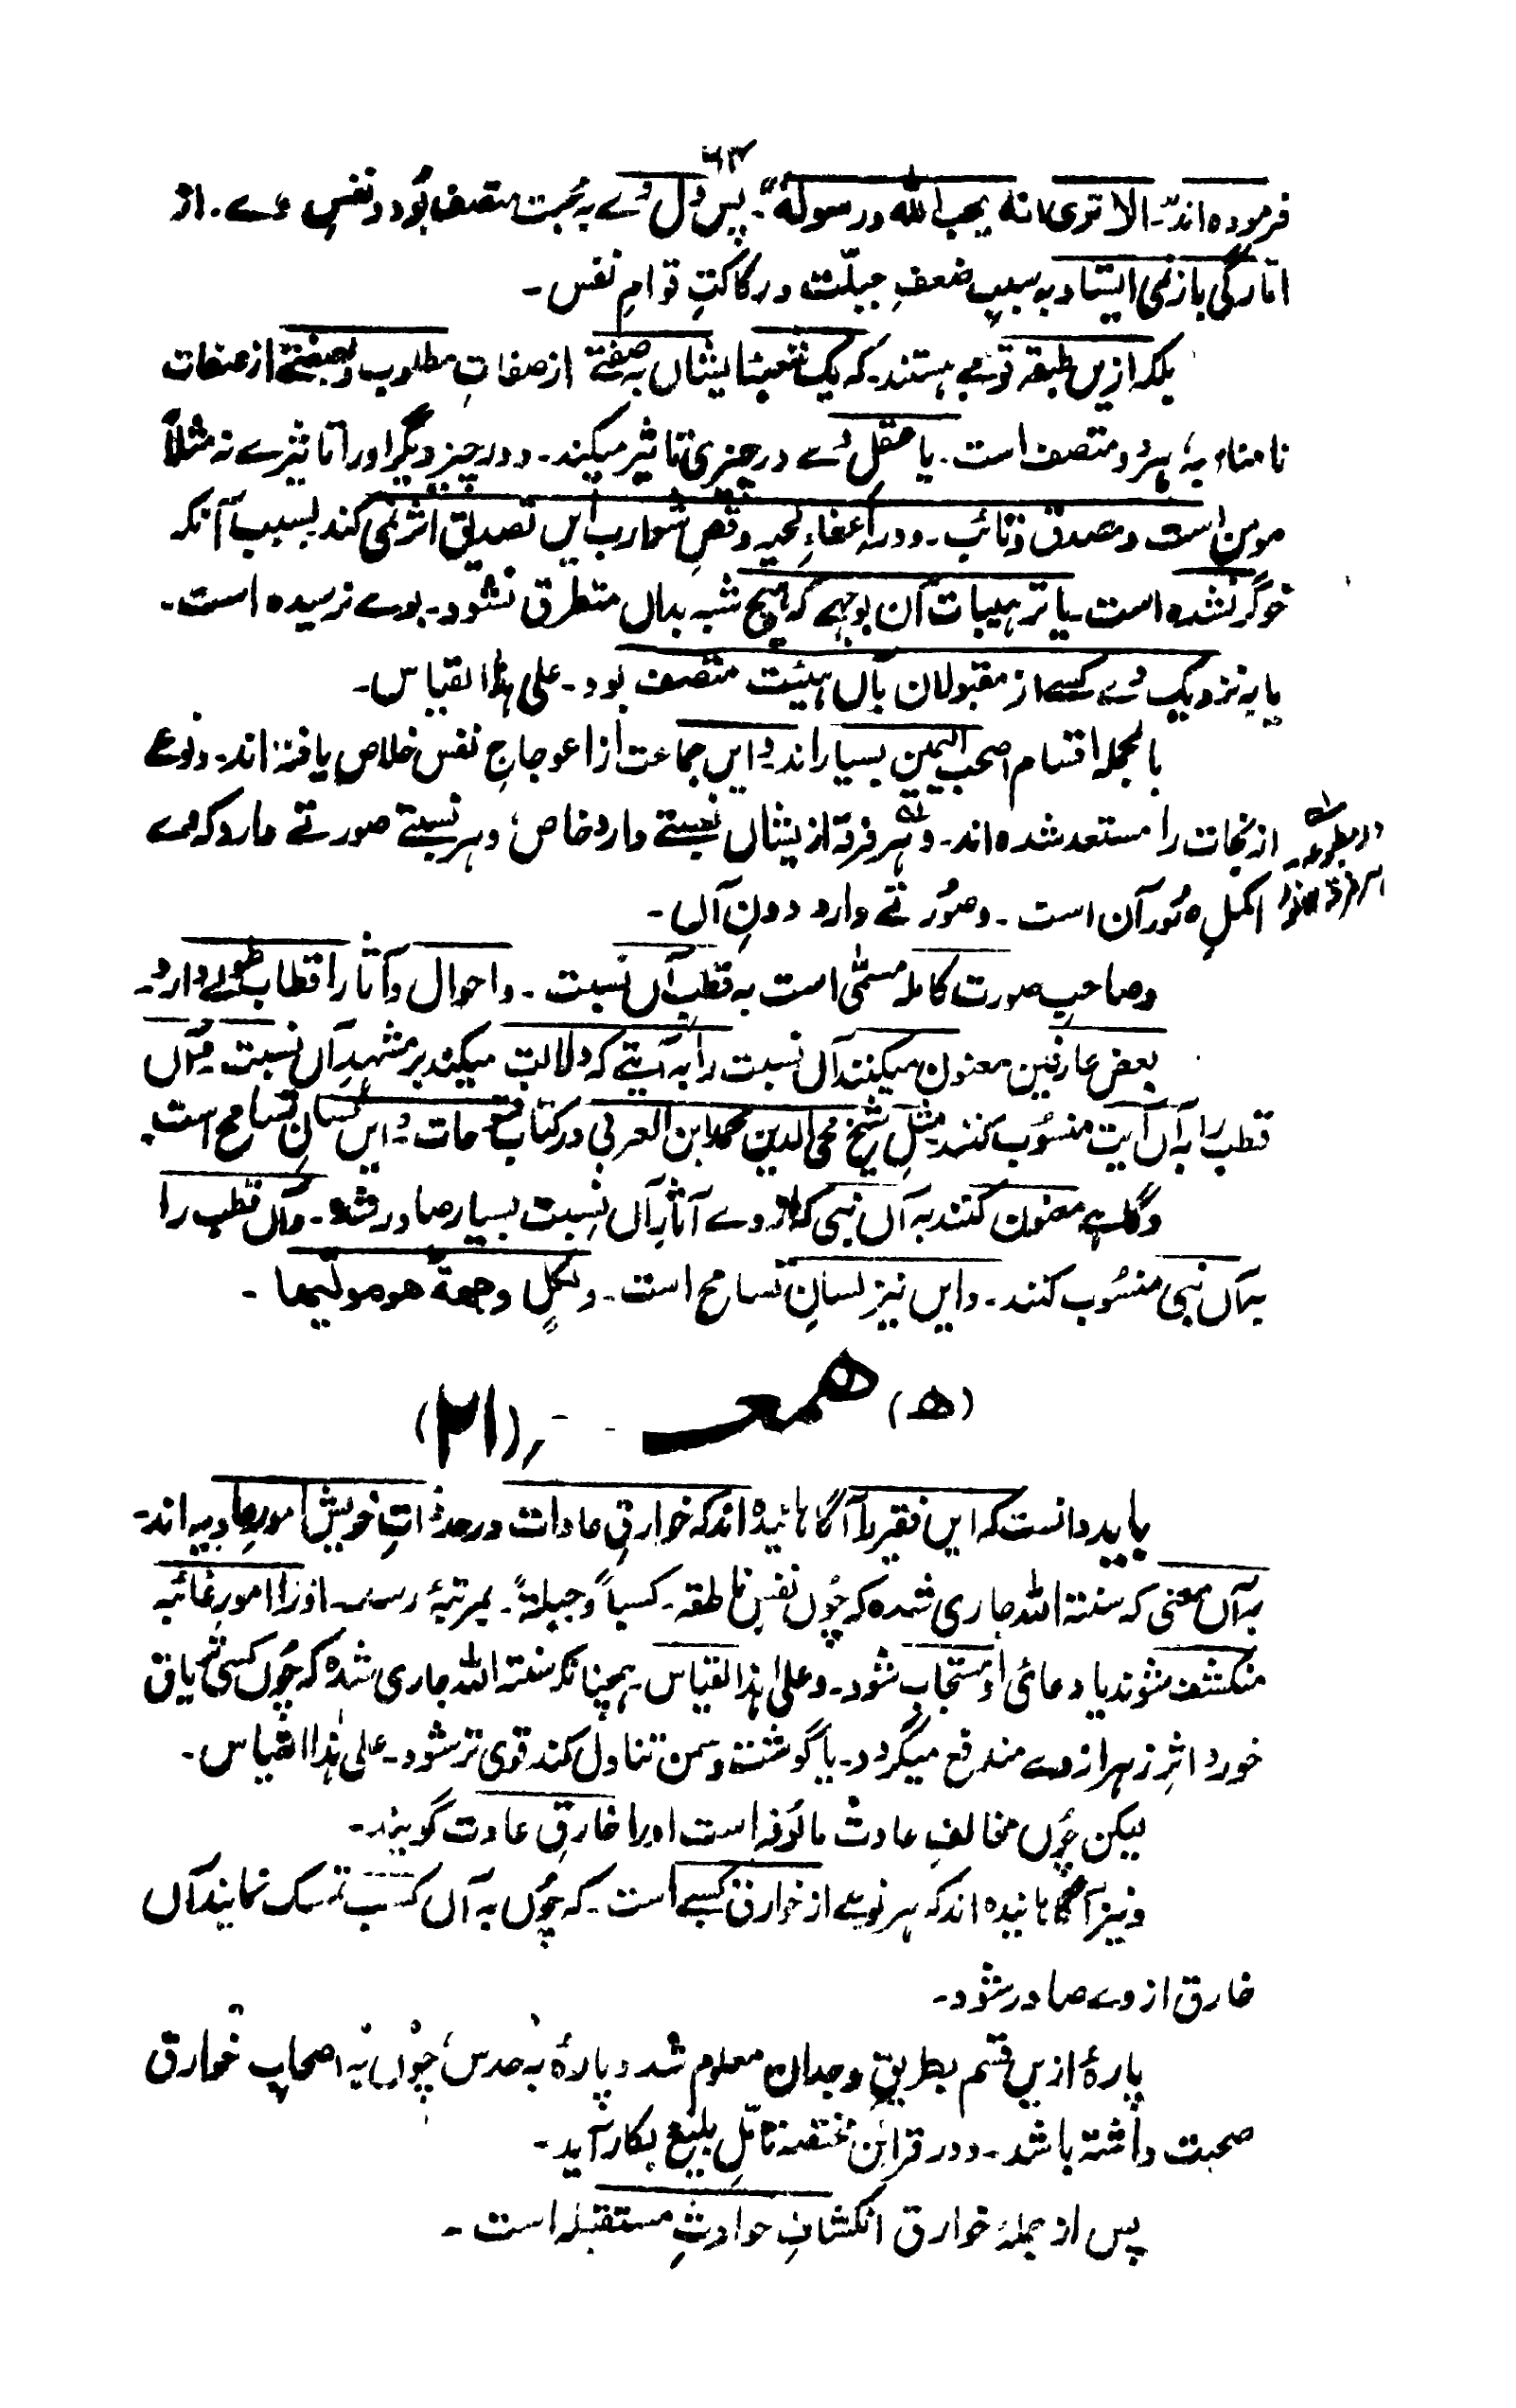 ۶۳
فرموده اند"۔ الا تری انه یحب الله و رسوله"۔ پس دلِ وے به محبت متصف بُود و نفسِ وے۔ از
امّارگی باز نمی ایستاد به سببِ ضعفِ جبلّت و رکاکتِ قوامِ نفس۔
بلکه ازیں طبقه قومے ہستند۔ که یک شعبۂ ایشاں به صفتے از صفاتِ مطلوب و بصفتے از صفات
نامناسبه، ہر دو متصف است۔ یا عقلِ وے در چیزی تاثیر میکند۔ و در چیز دیگر اورا تاثیرے نه مثلاً
مومن است و مصدق و تائب۔ و در اعفاءِ لحیه و قصِ شوارب ایں تصدیق اثر نمی کند بسبب آنکه
خوگر نشده است۔ یا ترہیبات آن بوجہے که ہیچ شبه بداں متطرق نشود۔ بوے نرسیده است۔
یا به نزدیک وے کسے از مقبولان بآں ہیئت متصف بود۔ علی ہٰذا القیاس۔
بالجمله اقسام اصحب الیمین بسیار اند و ایں جماعت از اعوجاجِ نفس خلاص یافته اند۔ و نوعے
از نجات را مستعد شده اند۔ و ہر فرقه از یشاں نسبتے دارد خاص؛ و ہر نسبتے صورتے دارد که وے
اکملِ صُور آن است۔ و صُورتے دارد دونِ آں۔
و صاحبِ صورت کامله مسمّٰی است به قطبِ آں نسبت۔ و احوال و آثار اقطاب طولے دارد۔
بعض عارفین معنون میکنند آں نسبت را به آیتے که دلالت میکند بر مشہدِ آں نسبت و آں
قطب را به آں آیت منسُوب کنند مثلِ شیخ محی الدین محمد ابن العربی در کتاب فتوحات و ایں لسانِ تسامح است۔
و گاہے معنون کنند به آں نبی که از وے آثارِ آں نسبت بسیار صادر شده۔ و آں قطب را
بہ آں نبی منسُوب کنند۔ و ایں نیز لسانِ تسامح است۔ ولکلٍ وجهة هو مولیها۔
(ھ) ھمعـــہ (۲۱)
باید دانست که ایں فقیر را آگاہانیده اند که خوارقِ عادات در حدِ ذاتِ خویش امورِ عادیه اند۔
به آں معنی که سنتة الله جاری شده که چُوں نفسِ ناطقه۔ کسباً وجبلةً۔ بمرتبۂ رسد۔ اورا امورِ غائبه
منکشف شوند یا دعائی او مستجاب شود۔ و علیٰ ہذا القیاس۔ ہمچنانکه سنتة الله جاری شده که چُوں کسی تریاق
خورد اثرِ زہر از وے مندفع میگردد۔ یا گوشت و سمن تناول کند قوی تر شود۔ علی ہٰذا القیاس۔
لیکن چُوں مخالفِ عادت مالُوفه است اورا خارقِ عادت گویند۔
و نیز آگاہانیده اند که ہر نوعے از خوارق کسبے است۔ که چُوں به آں کسب تمسک نمایند آں
خارق از وے صادر شود۔
پارۂ ازیں قسم بطریقِ وجدان معلوم شد و پارۂ به حدس، چوں به اصحابِ خوارق
صحبت داشته باشد۔ و در قرائنِ مختصه تامّلِ بلیغ بکار آید۔
پس از جملۂ خوارق انکشافِ حوادثِ مستقبله است۔